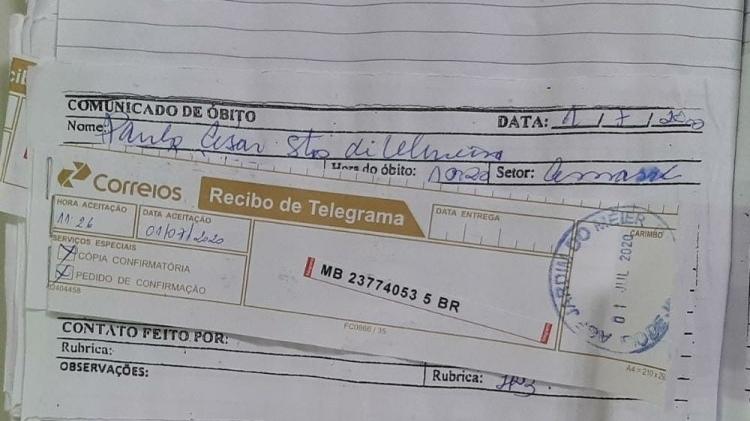 COMUNICADO DE ÓBITO DATA: 1 / 7 / 2020
Nome: Paulo Cesar Stos
Hora do óbito: 10:20 Setor:
Correios Recibo de Telegrama
HORA ACEITAÇÃO DATA ACEITAÇÃO DATA ENTREGA
11:26 01/07/2020 CARIMBO
SERVIÇOS ESPECIAIS
X CÓPIA CONFIRMATÓRIA
X PEDIDO DE CONFIRMAÇÃO
MB 23774053 5 BR
JARDIM DO MEIER
01 JUL 2020
FC0866 / 35
CONTATO FEITO POR:
Rubrica:
OBSERVAÇÕES:
Rubrica: